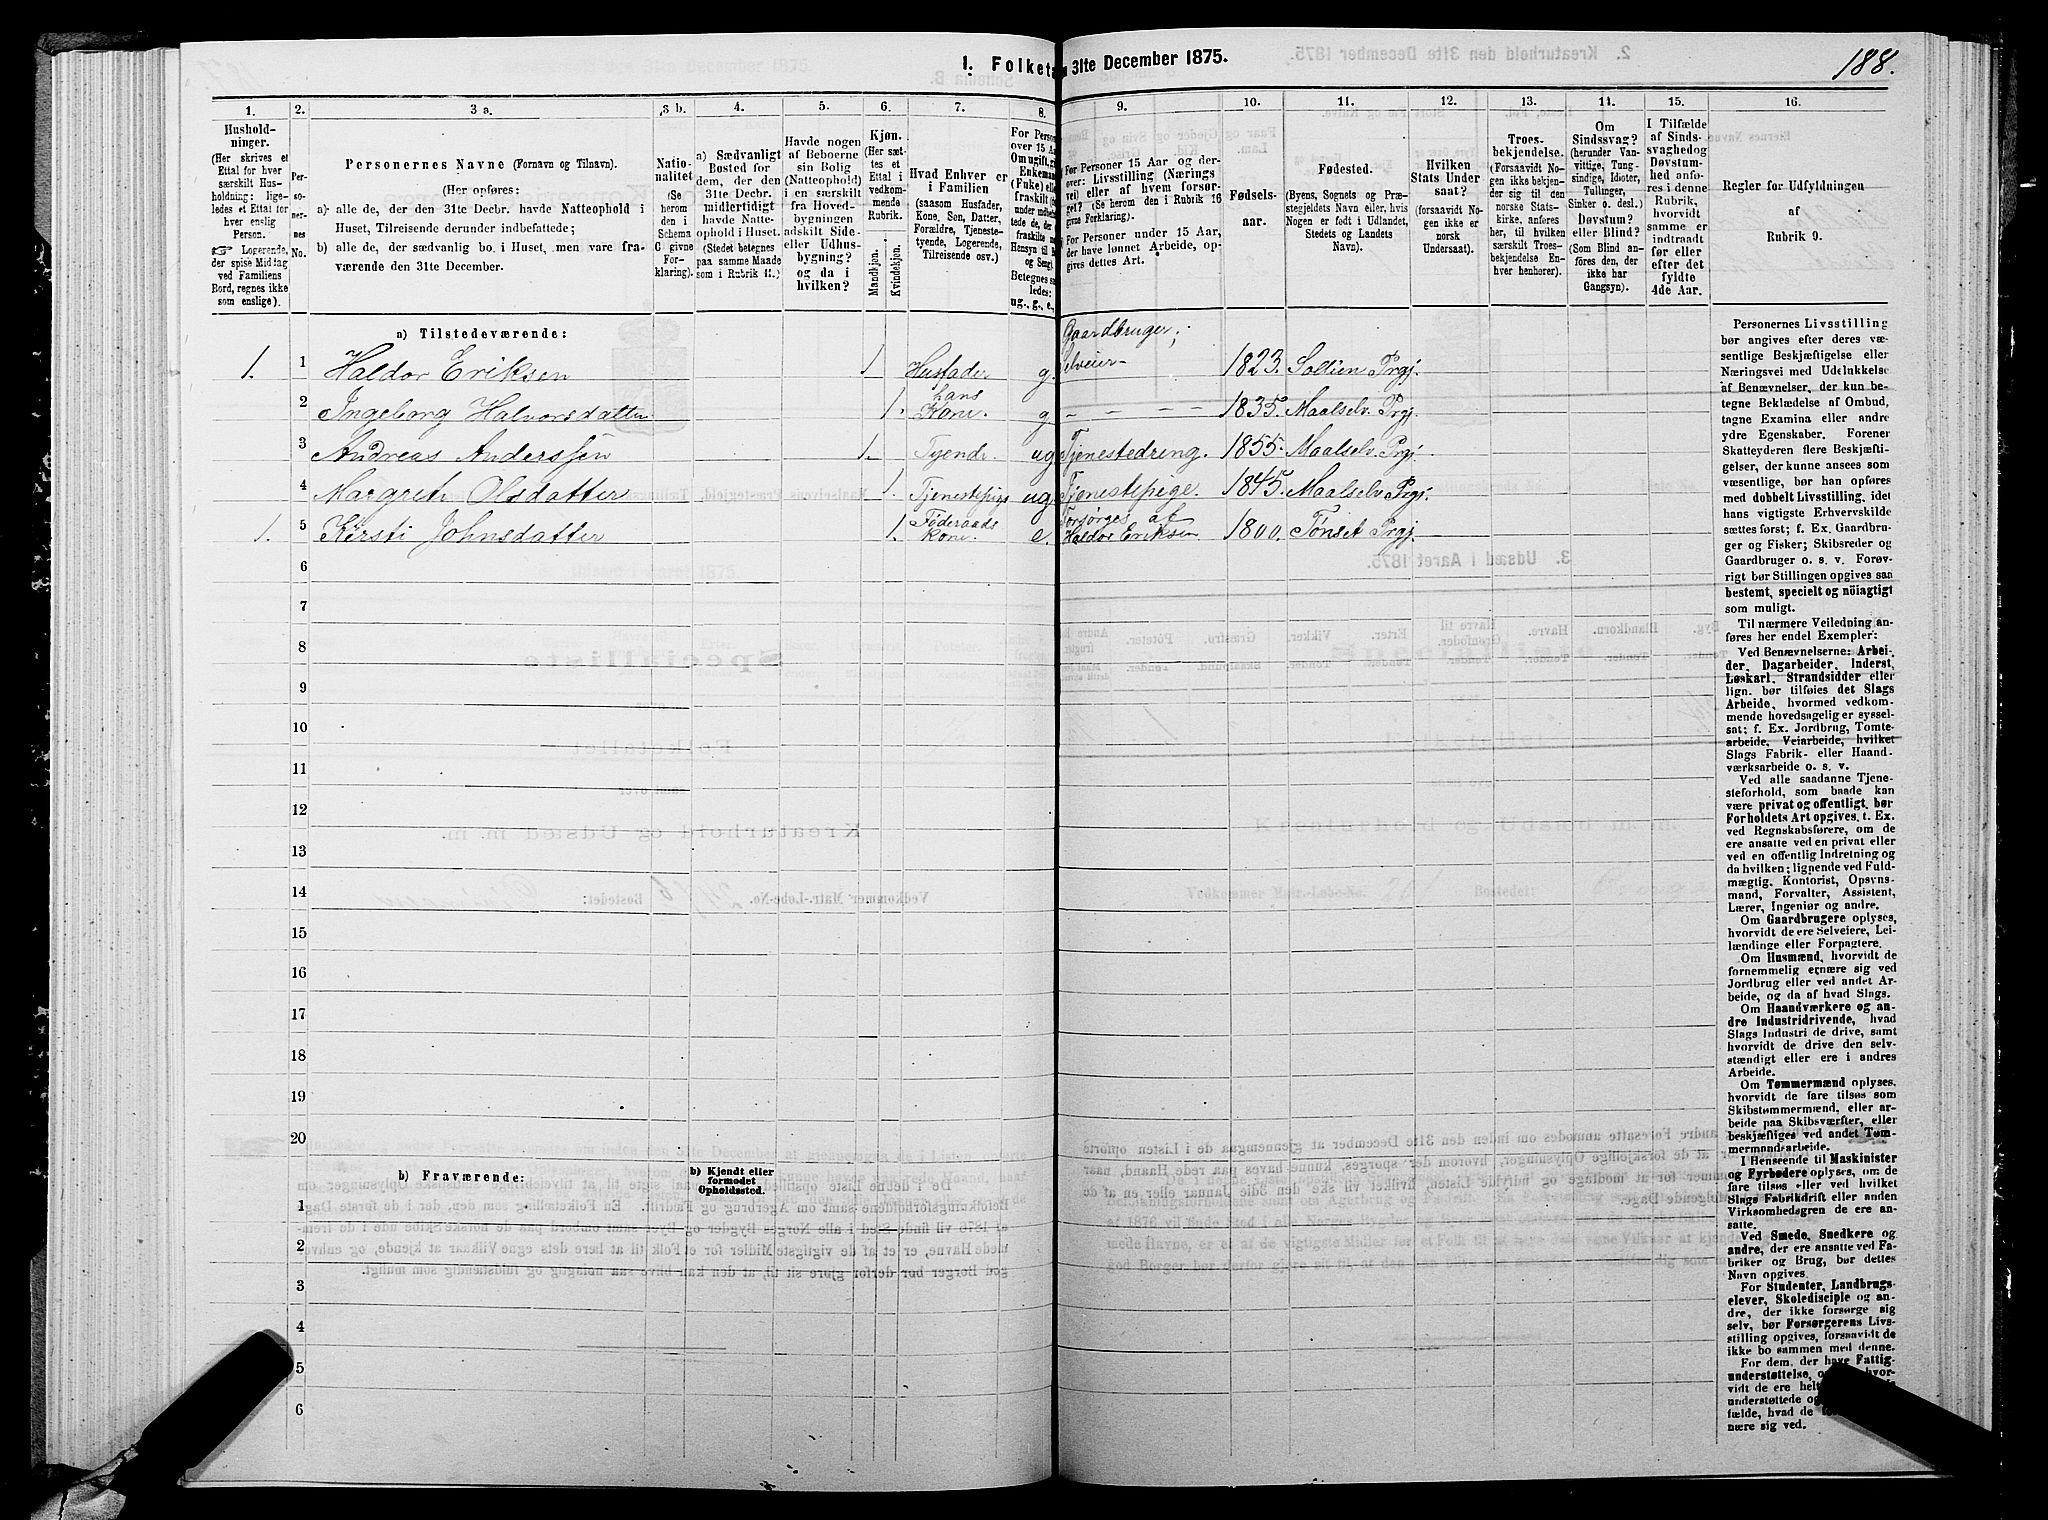 188.
1. Folketæ
31te December 1875.
1. 2. 3 a. 3 b. 4. 5. 6. 7. 8. 9. 10. 11. 12. 13. 14. 15. 16.
Hushold-
ninger.
(Her skrives et
Ettal for hver
særskilt Hus-
holdning; lige-
ledes et Ettal for
hver enslig
Person.
☞ Logerende,
der spise Middag
ved Familiens
Bord, regnes ikke
som enslige).
Per-
so-
ner-
nes
No.
Personernes Navne (Fornavn og Tilnavn).
(Her opføres:
a) alle de, der den 31te Decbr. havde Natteophold i
Huset, Tilreisende derunder indbefattede;
b) alle de, der sædvanlig bo i Huset, men vare fra-
værende den 31te December.
Natio-
nalitet
(Se
herom
den i
Schema
C givne
For-
klaring).
a) Sædvanligt
Bosted for
dem, der den
31te Decbr.
midlertidigt
havde Natte-
ophold i Huset.
(Stedet betegnes
paa samme Maade
som i Rubrik 11.)
Havde nogen
af Beboerne
sin Bolig
(Natteophold)
i en særskilt
fra Hoved-
bygningen
adskilt Side-
eller Udhus-
bygning?
og da i
hvilken?
Kjøn.
(Her sæt-
tes et
Ettal i
vedkom-
mende
Rubrik.
Mandkjøn.
Kvindekjøn.
Hvad Enhver er
i Familien
(saasom Husfader,
Kone, Søn, Datter,
Forældre, Tjeneste-
tyende, Logerende,
Tilreisende osv.)
For Person
over 15 Aar
Om ugift, gi
Enkemand
(Fuke) elle
fraskilt (d
ug., g., e.,
For Personer 15 Aar og der-
over: Livsstilling (Nærings
vei) eller af hvem forsør-
get? (Se herom den i Rubrik 16
givne Forklaring).
For Personer under 15 Aar,
der have lønnet Arbeide, op-
gives dettes Art.
Fødsels-
aar.
Fødested.
(Byens, Sognets og Præ-
stegjeldets Navn eller, hvis
Nogen er født i Udlandet,
Stedets og Landets
Navn).
Hvilken
Stats Under
saat?
(forsaavidt No-
gen ikke er
norsk
Undersaat).
Troes-
bekjendelse.
(Forsaavidt No-
gen ikke bekjen-
der sig til den
norske Stats-
kirke, anføres
her, til hvilken
særskilt Troes-
bekjendelse En-
hver henhører).
Om
Sindssvag?
(herunder Van-
vittige, Tung-
sindige, Idioter,
Tullinger,
Sinker o. desl.)
Døvstum?
eller Blind?
(Som Blind an-
føres den, der
ikke har
Gangsyn).
I Tilfælde
af Sinds-
svaghed og
Døvstum-
hed anfø-
res i denne
Rubrik,
hvorvidt
samme er
indtraadt
før eller
efter det
fyldte
4de Aar.
Regler for Udfyldningen
af
Rubrik 9.
a) Tilstedeværende:
Gaardbruger,
1. 1 Haldor Eriksen 1 Husfader g. Selveier 1823. Solüen Prgj.
2 Ingeborg Halvorsdatter 1. hans Kone. g - - - - 1835. Maalselv. Prgj.
3 Andreas Anderssen 1. Tyende ug Tjenestedreng. 1855. Maalselv. Prgj.
4 Margrete Olsdatter 1. Tjenestepige ug Tjenestepige. 1845. Maalselv Prgj.
1. 5 Kirsti Johnsdatter 1. Föderaads kone. e. Forsørges af Haldor Eriksen 1800. Tønset Prgj.
6
7
8
9
10
11
12
13
14
15
16
17
18
19
20
b) Fraværende:
b) Kjendt eller
formodet
Opholdssted.
1
2
3
4
5
6
Personernes Livsstilling
bør angives efter deres væ-
sentlige Beskjæftigelse eller
Næringsvei med Udelukkelse
af Benævnelser, der kun be-
tegne Beklædelse af Ombud,
tagne Examina eller andre
ydre Egenskaber. Forener
Skatteyderen flere Beskjæfti-
gelser, der kunne ansees som
væsentlige, bør han opføres
med dobbelt Livsstilling, idet
hans vigtigste Erhvervskilde
sættes først; f. Ex. Gaardbru-
ger og Fisker; Skibsreder og
Gaardbruger o. s. v. Forøv-
rigt bør Stillingen opgives saa
bestemt, specielt og nöiagtigt
som muligt.
Til nærmere Veiledning an-
føres her endel Exempler:
Ved Benævnelserne: Arbei-
der, Dagarbeider, Inderst,
Løskarl, Strandsidder eller
lign. bør tilføies det Slags
Arbeide, hvormed vedkom-
mende hovedsagelig er syssel-
sat; f. Ex. Jordbrug, Tomte-
arbeide, Veiarbeide, hvilket
Slags Fabrik- eller Haand-
værksarbeide o. s. v.
Ved alle saadanne Tjene-
steforhold, som baade kan
være privat og offentligt, bør
Forholdets Art opgives, t. Ex.
ved Regnskabsførere, om de
ere ansatte ved en privat eller
ved en offentlig Indretning og
da hvilken; lignende ved Fuld-
mægtig, Kontorist, Opsyns-
mand, Forvalter, Assistent,
Lærer, Ingeniør og andre.
Om Gaardbrugere oplyses,
hvorvidt de ere Selveiere, Lei-
lændinge eller Forpagtere.
Om Husmænd, hvorvidt de
fornemmelig ernære sig ved
Jordbrug eller ved andet Ar-
beide, og da af hvad Slags.
Om Haandværkere og an-
dre Industridrivende, hvad
Slags Industri de drive, samt
hvorvidt de drive den selv-
stændigt eller ere i andres
Arbeide.
Om Tømmermænd oplyses,
hvorvidt de fare tilsøs som
Skibstømmermænd, eller ar-
beide paa Skibsværfter, eller
beskjæftiges ved andet Tøm-
mermandsarbeide.
I Henseende til Maskinister
og Fyrbødere oplyses, om de
fare tilsøs eller ved hvilket
Slags Fabrikdrift eller anden
Virksomhedsgren de ere an-
satte.
Ved Smede, Snedkere og
andre, der ere ansatte ved Fa-
briker og Brug, bør dettes
Navn opgives.
For Studenter, Landbrugs-
elever, Skoledisciple og an-
dre, der ikke forsørge sig
selv, bør Forsørgerens Livs-
stilling opgives, forsaavidt de
ikke bo sammen med denne.
For dem, der have Fattig-
understøttelse,
vidt de ere
understøttede og
fælde, hvad de
nære sig ved.